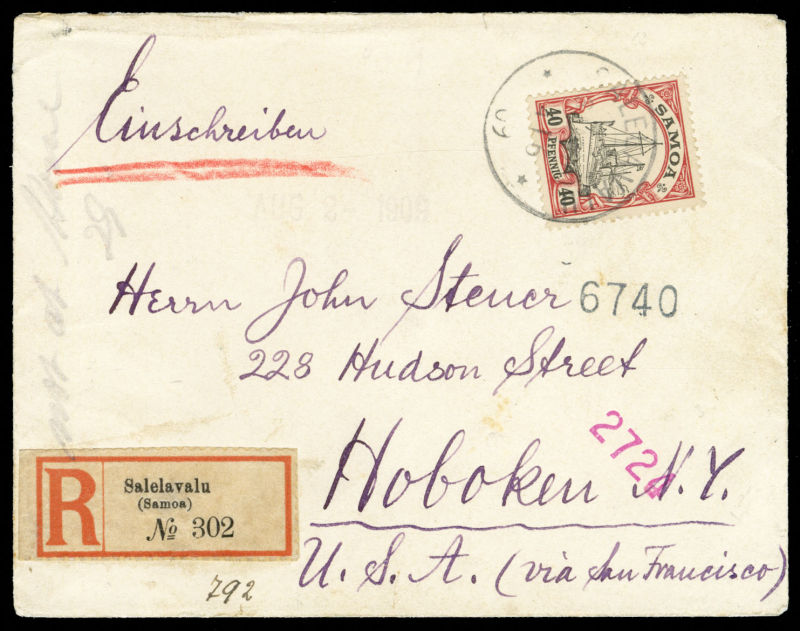 Einschreiben
SAMOA
40 PFENNIG 40
09
Herrn John Steuer 6740
228 Hudson Street
Hoboken N.Y.
U. S. A. (via San Francisco)
R
Salelavalu
(Samoa)
№ 302
792